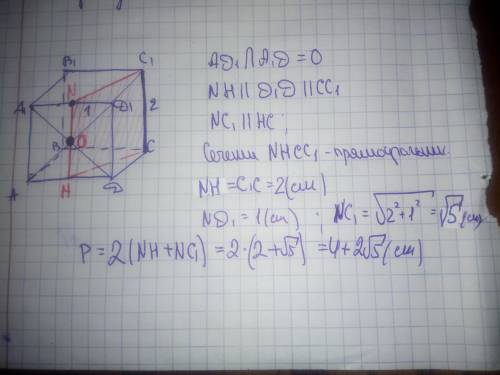 B₁ C₁
N
A₁ 1 D₁ 2
B O C
A H D
AD₁ ∩ A₁D = O
NH || D₁D || CC₁
NC₁ || HC ;
Сечение NHCC₁ - прямоугольник.
NH = C₁C = 2 (см)
ND₁ = 1 (см) ; NC₁ = √2² + 1² = √5 (см)
P = 2 (NH + NC₁) = 2 · (2 + √5) = 4 + 2√5 (см)